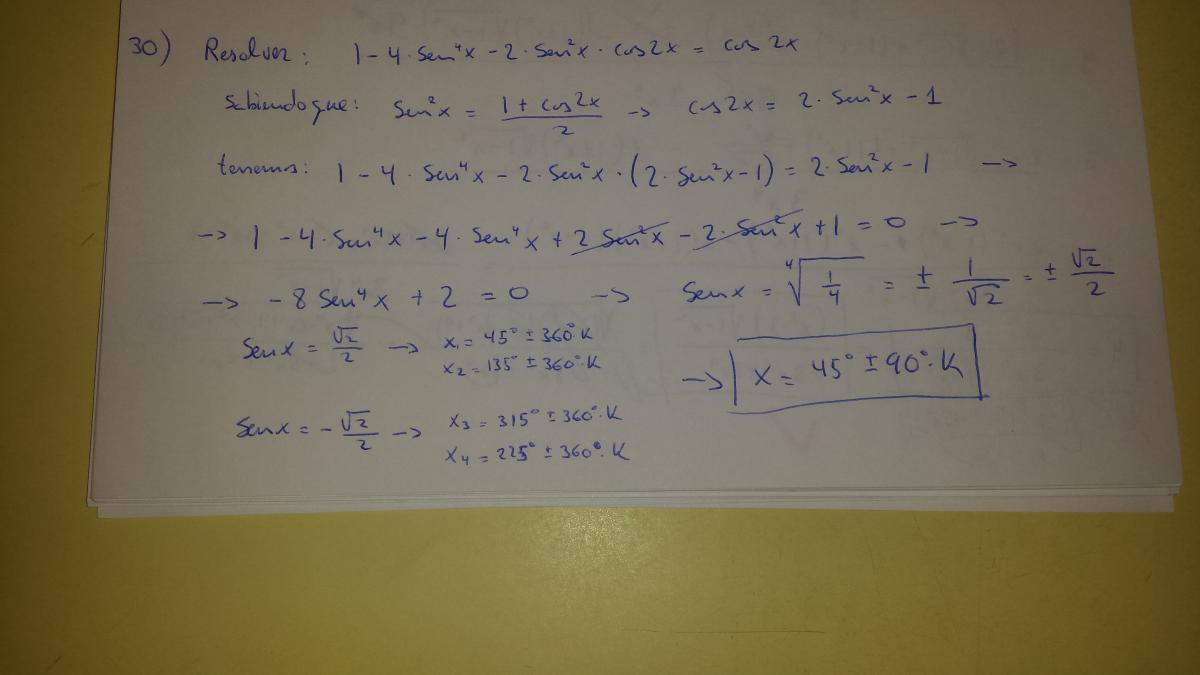 30) Resolver: 1 - 4·Sen⁴x - 2·Sen²x · cos2x = cos 2x
Sabiendo que: Sen²x = (1 + cos2x)/2 → cos2x = 2·Sen²x - 1
tenemos: 1 - 4·Sen⁴x - 2·Sen²x·(2·Sen²x-1) = 2·Sen²x - 1 →
→ 1 - 4·Sen⁴x - 4·Sen⁴x + 2 Sen²x - 2·Sen²x + 1 = 0 →
→ - 8 Sen⁴x + 2 = 0 → Senx = ⁴√(1/4) = ± 1/√2 = ± √2/2
Senx = √2/2 → x₁ = 45° ± 360°·K
x₂ = 135° ± 360°·K
→ x = 45° ± 90°·K
Senx = - √2/2 → x₃ = 315° ± 360°·K
x₄ = 225° ± 360°·K